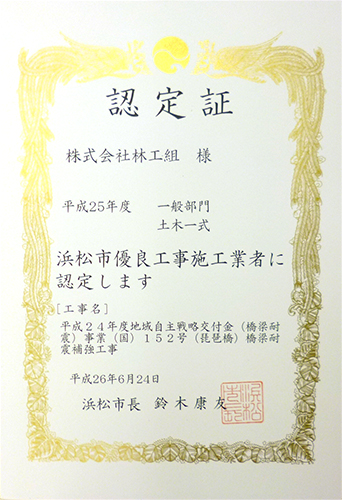 認定証
株式会社林工組 様
平成25年度 一般部門
土木一式
浜松市優良工事施工業者に
認定します
[工事名]
平成24年度地域自主戦略交付金(橋梁耐
震)事業(国)152号(琵琶橋)橋梁耐
震補強工事
平成26年6月24日
浜松市長 鈴木康友